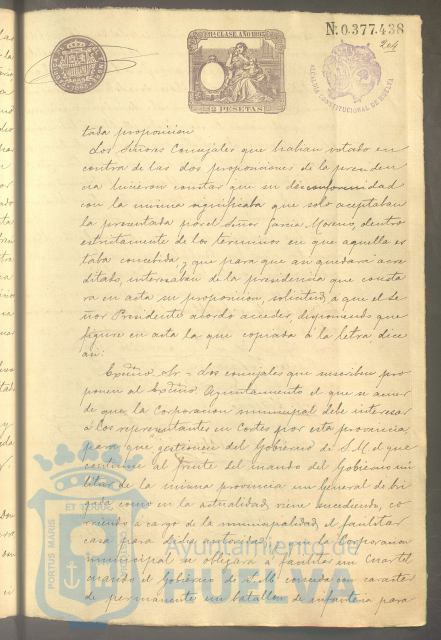 Nº 0.377.438
204
11ª CLASE AÑO 1893
2 PESETAS
ALCALDIA CONSTITUCIONAL DE HUELVA
tada proposicion
Los Señores Concejales que habian votado en
contra de las dos proposiciones de la presiden
cia hicieron constar que su disconformidad
con la misma significaba que solo aceptaban
la presentada por el Señor Garcia Moreno, dentro
estrictamente de los terminos en que aquella es
taba concebida, y que para que asi quedara acre
ditado, interesaban de la presidencia que consta
ra en acta su proposicion, solicitud á que el Se
ñor Presidente acordó acceder, disponiendo que
figure en acta la que copiada á la letra dice
asi:
Excmo Sr = Los concejales que suscriben pro
ponen al Excmo Ayuntamiento el que se acuer
de que la Corporacion municipal debe interesar
á los representantes en Cortes por esta provincia
para que gestionen del Gobierno de S. M. el que
continue al frente del mando del Gobierno mi
litar de la misma provincia un General de bri
gada como en la actualidad viene sucediendo, co
rriendo á cargo de la municipalidad el facilitar
casa para dicha autoridad, y que la Corporacion
municipal se obligara á facilitar un Cuartel
cuando el Gobierno de S. M. conceda con caracter
de permanente un batallon de infanteria para
PORTUS MARIS ET TERRAE
Ayuntamiento de
HUELVA